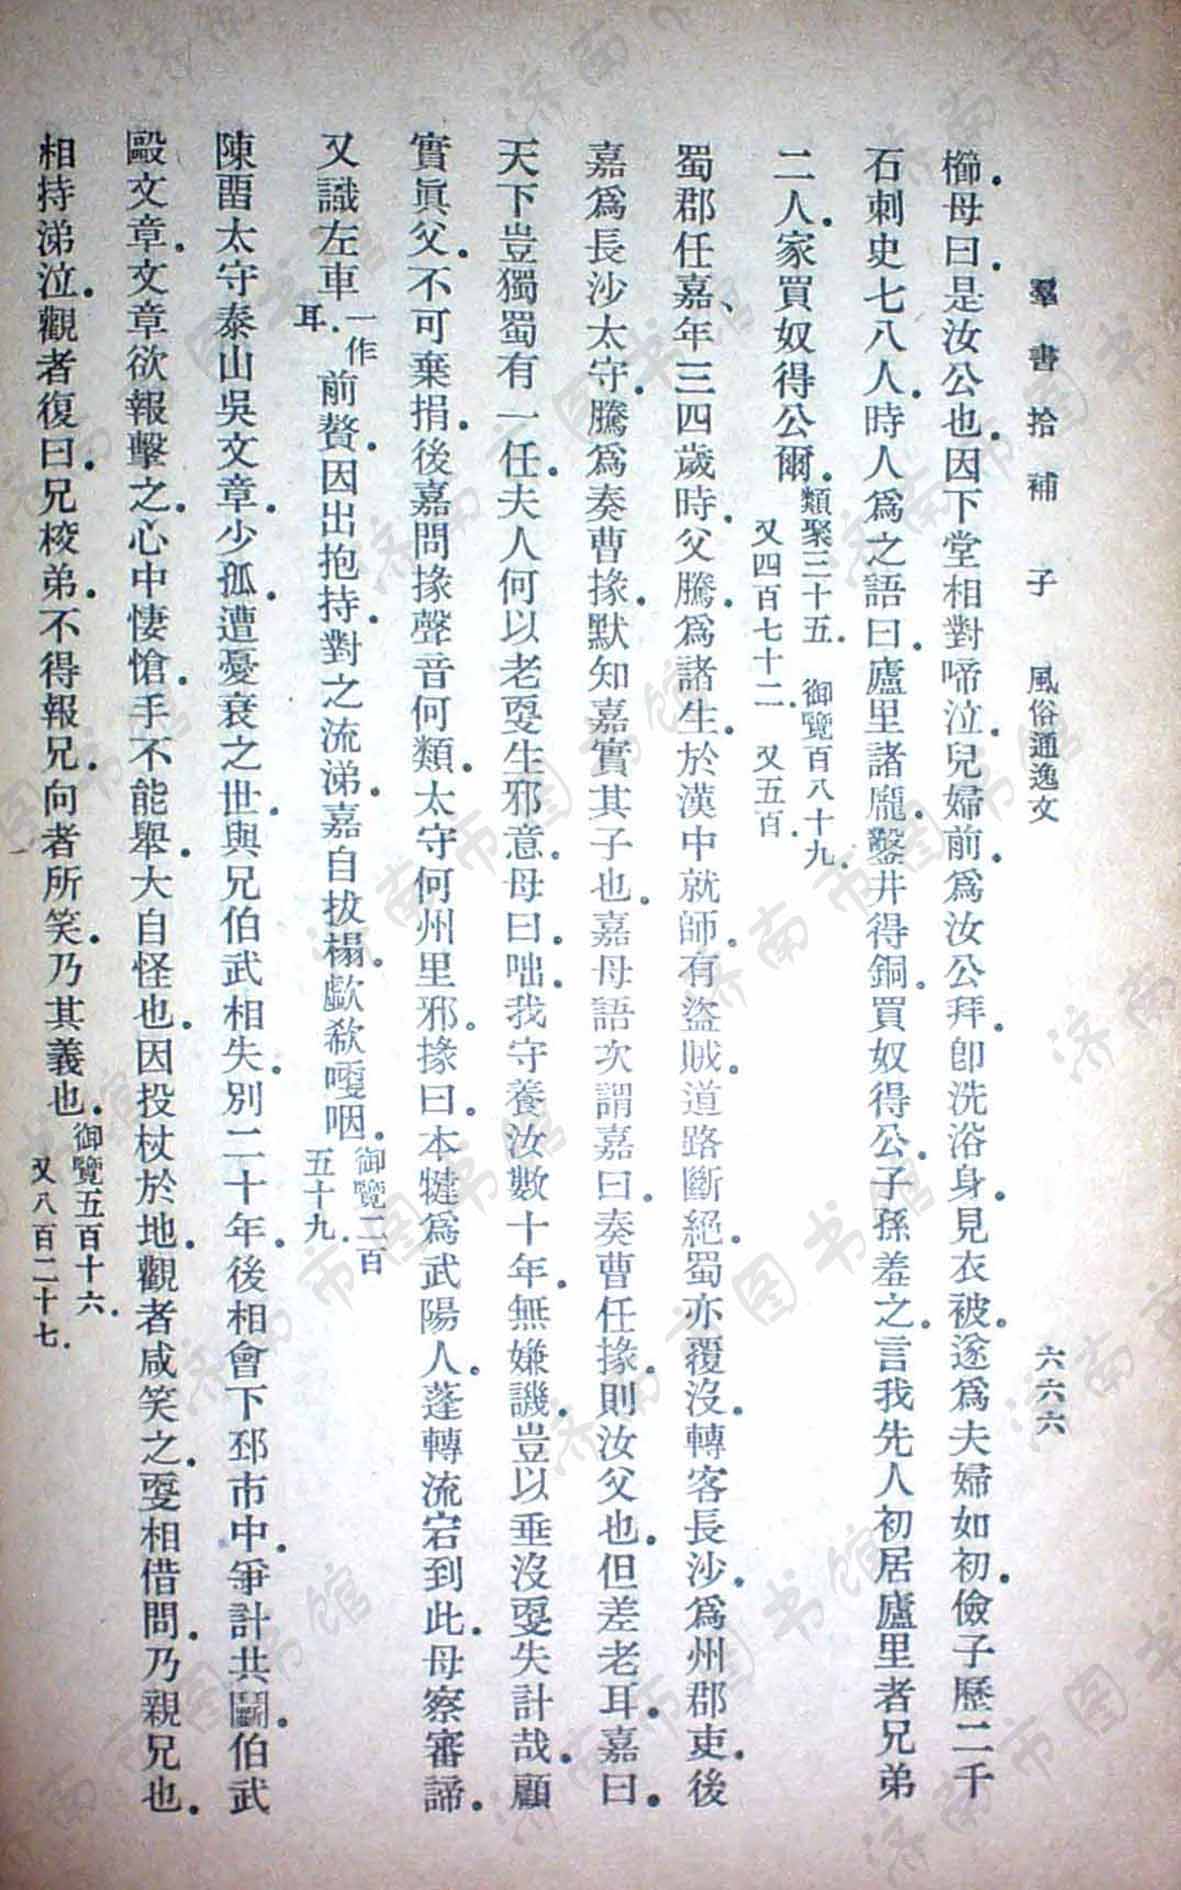 羣書拾補 子 風俗通逸文 六六六
櫛。母曰。是汝公也。因下堂相對啼泣。兒婦前。爲汝公拜。卽洗浴身。見衣被。遂爲夫婦如初。儉子歷二千
石刺史七八人。時人爲之語曰。廬里諸龐。鑿井得銅。買奴得公。子孫羞之。言我先人初居廬里者。兄弟
二人。家買奴得公爾。類聚三十五。 御覽百八十九。 又四百七十二。 又五百。
蜀郡任嘉、年三四歲時。父騰。爲諸生。於漢中就師。有盜賊。道路斷絕。蜀亦覆沒。轉客長沙。爲州郡吏。後
嘉爲長沙太守。騰爲奏曹掾。默知嘉實其子也。嘉母語次謂嘉曰。奏曹任掾。則汝父也。但差老耳。嘉曰。
天下豈獨蜀有一任。夫人何以老更生邪意。母曰。咄。我守養汝數十年。無嫌譏。豈以垂沒更失計哉。顧
實眞父。不可棄捐。後嘉問掾聲音何類。太守何州里邪。掾曰。本犍爲武陽人。蓬轉流宕到此。母察審諦。
又識左車一作耳。前贅。因出抱持。對之流涕。嘉自拔榻。歔欷哽咽。御覽二百五十九。
陳畱太守泰山吳文章。少孤。遭憂衰之世。與兄伯武相失。別二十年。後相會下邳市中。爭計共鬭。伯武
毆文章。文章欲報擊之。心中悽愴。手不能舉。大自怪也。因投杖於地。觀者咸笑之。更相借問。乃親兄也。
相持涕泣。觀者復曰。兄校弟。不得報兄。向者所笑。乃其義也。御覽五百十六。 又八百二十七。
济南市图书馆